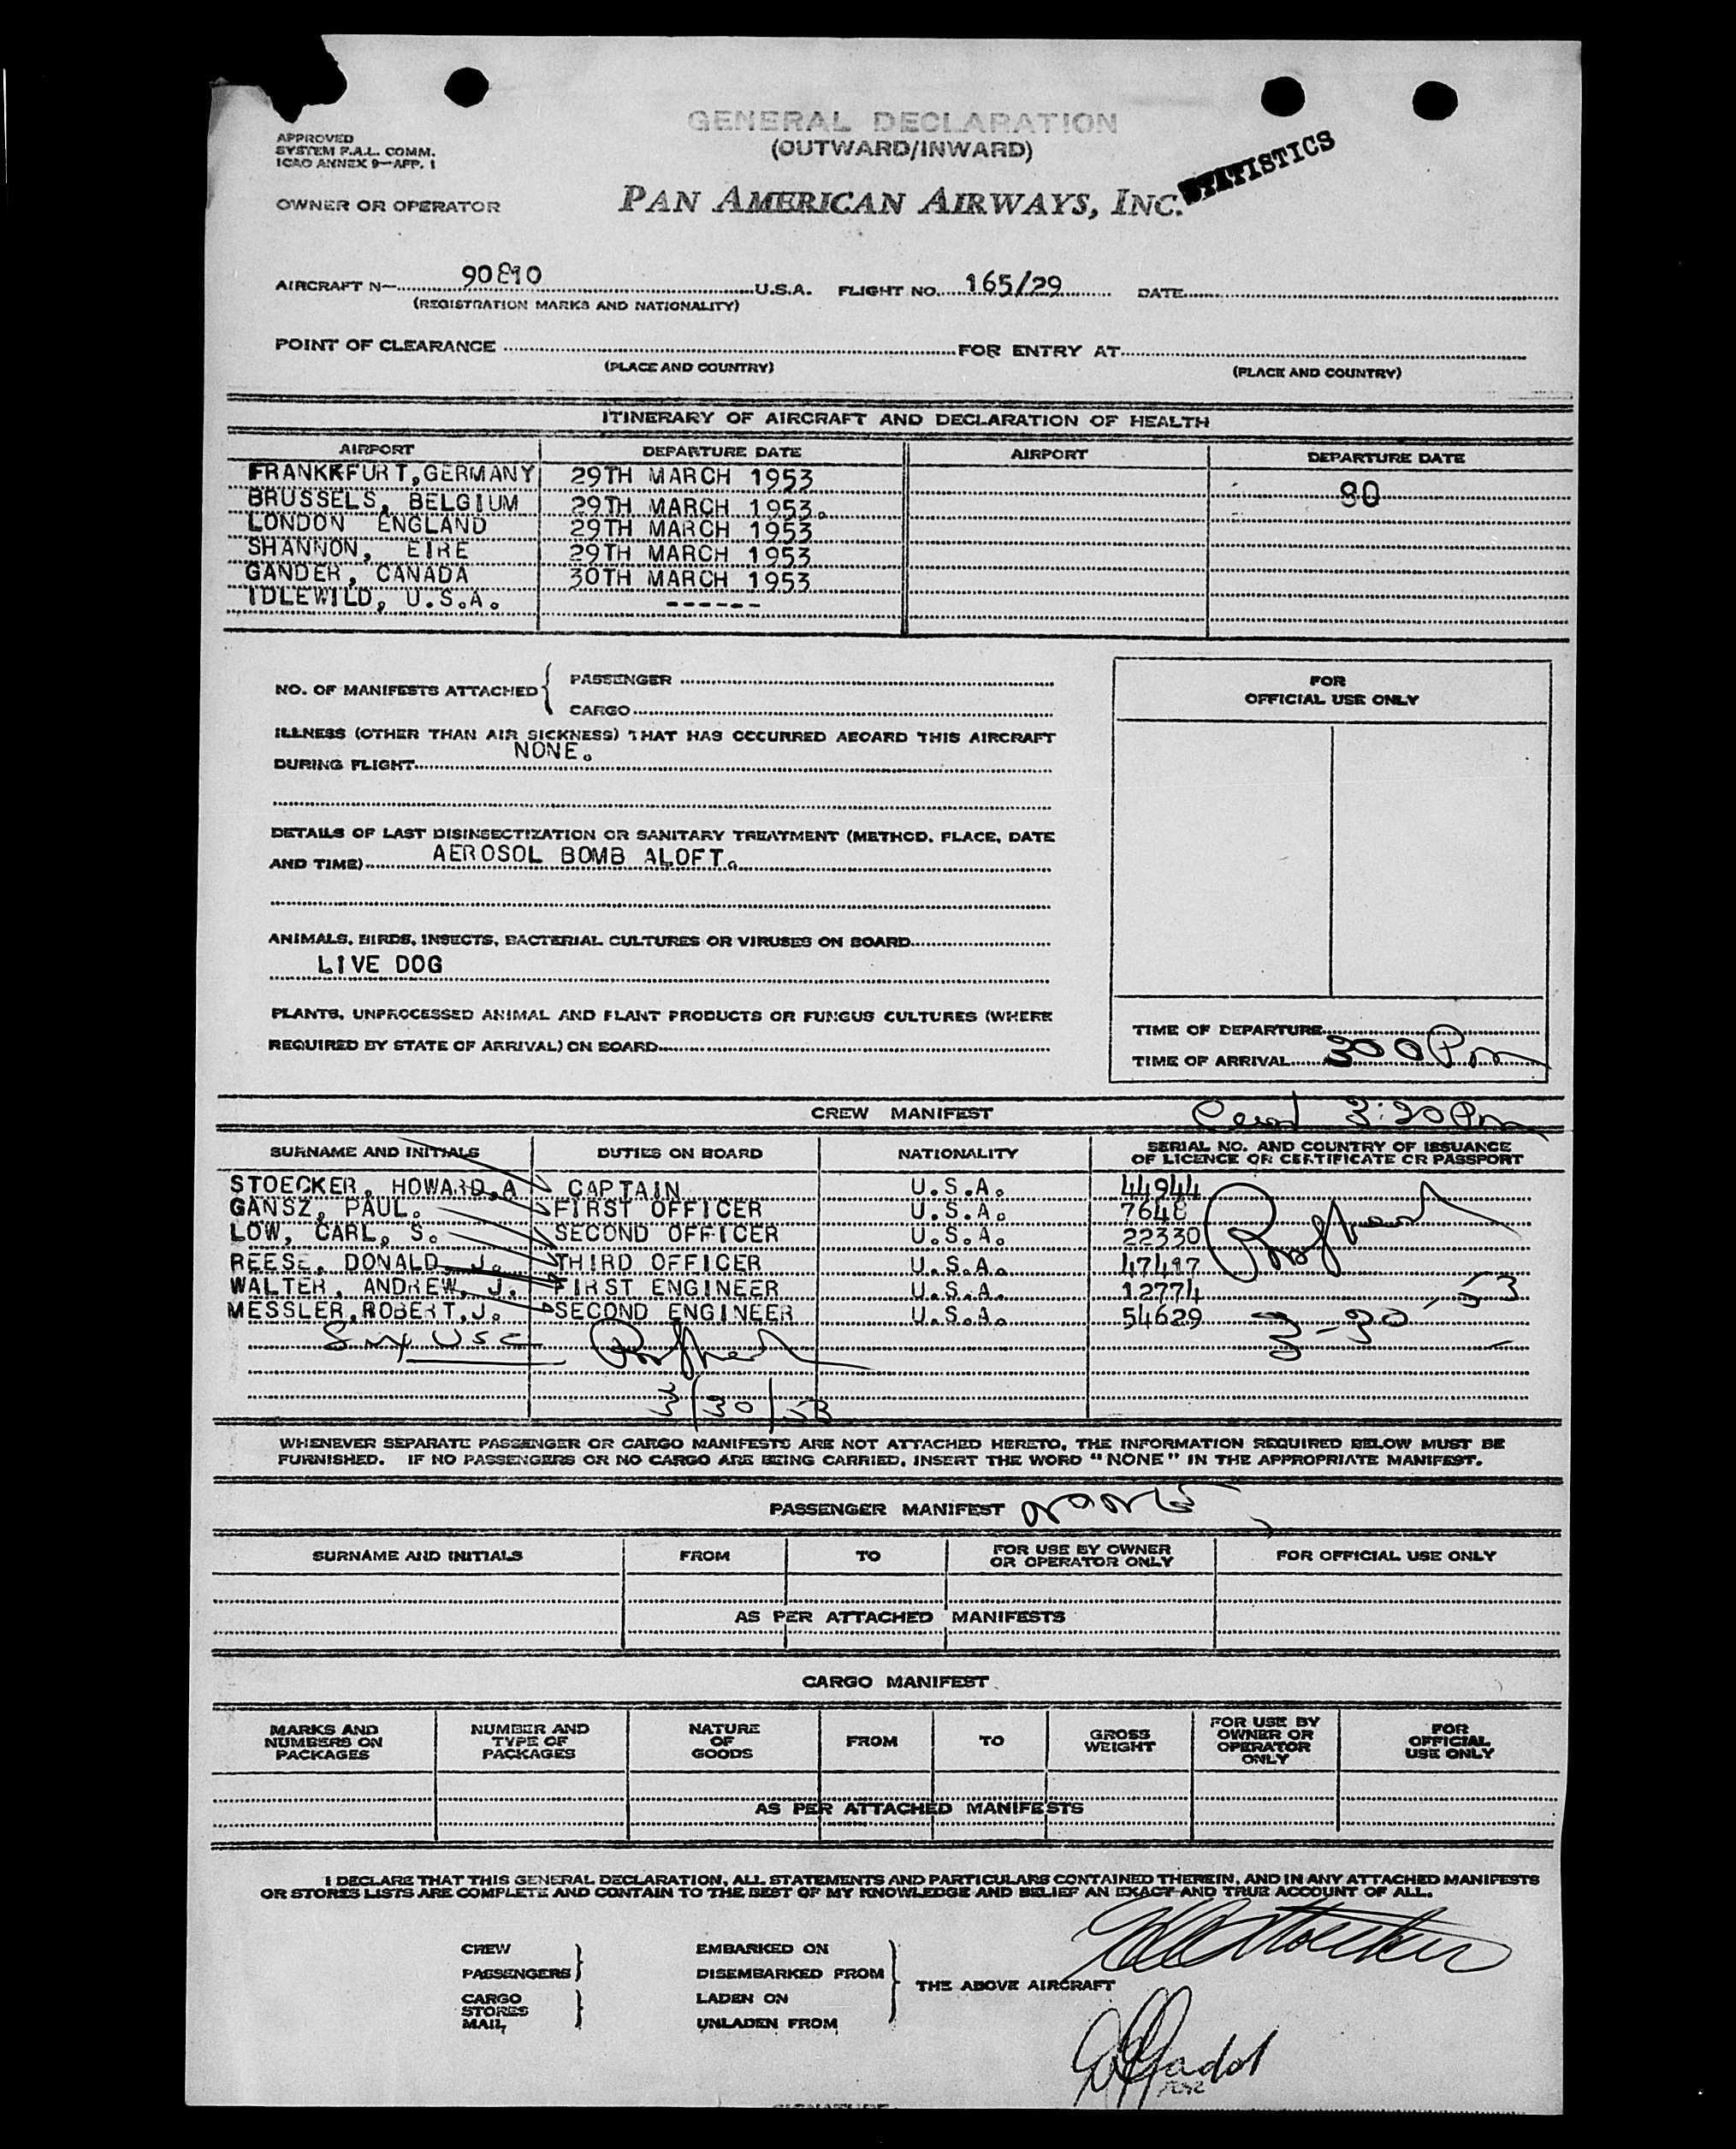 GENERAL DECLARATION
(OUTWARD/INWARD)
APPROVED
SYSTEM F.A.L. COMM.
ICAO ANNEX 9—APP. 1
STATISTICS
OWNER OR OPERATOR PAN AMERICAN AIRWAYS, INC.
AIRCRAFT N— 90810 U.S.A. FLIGHT NO. 165/29 DATE
(REGISTRATION MARKS AND NATIONALITY)
POINT OF CLEARANCE FOR ENTRY AT
(PLACE AND COUNTRY) (PLACE AND COUNTRY)
ITINERARY OF AIRCRAFT AND DECLARATION OF HEALTH
AIRPORT DEPARTURE DATE AIRPORT DEPARTURE DATE
FRANKKFURT,GERMANY 29TH MARCH 1953 80
BRUSSELS, BELGIUM 29TH MARCH 1953.
LONDON ENGLAND 29TH MARCH 1953
SHANNON, EIRE 29TH MARCH 1953
GANDER, CANADA 30TH MARCH 1953
IDLEWILD, U.S.A. ------
NO. OF MANIFESTS ATTACHED { PASSENGER
CARGO
FOR
OFFICIAL USE ONLY
ILLNESS (OTHER THAN AIR SICKNESS) THAT HAS OCCURRED ABOARD THIS AIRCRAFT
DURING FLIGHT NONE.
DETAILS OF LAST DISINSECTIZATION OR SANITARY TREATMENT (METHOD, PLACE, DATE
AND TIME) AEROSOL BOMB ALOFT.
ANIMALS, BIRDS, INSECTS, BACTERIAL CULTURES OR VIRUSES ON BOARD
LIVE DOG
PLANTS, UNPROCESSED ANIMAL AND PLANT PRODUCTS OR FUNGUS CULTURES (WHERE
REQUIRED BY STATE OF ARRIVAL) ON BOARD
TIME OF DEPARTURE
TIME OF ARRIVAL 300 Pm
CREW MANIFEST 3:20 Pm
SURNAME AND INITIALS DUTIES ON BOARD NATIONALITY SERIAL NO. AND COUNTRY OF ISSUANCE
OF LICENCE OR CERTIFICATE OR PASSPORT
STOECKER, HOWARD,A CAPTAIN U.S.A. 44944
GANSZ, PAUL. FIRST OFFICER U.S.A. 7648
LOW, CARL, S. SECOND OFFICER U.S.A. 22330
REESE, DONALD, J. THIRD OFFICER U.S.A. 47417
WALTER, ANDREW, J. FIRST ENGINEER U.S.A. 12774
MESSLER,ROBERT,J. SECOND ENGINEER U.S.A. 54629
3-30-53
USC
3/30/53
WHENEVER SEPARATE PASSENGER OR CARGO MANIFESTS ARE NOT ATTACHED HERETO, THE INFORMATION REQUIRED BELOW MUST BE
FURNISHED. IF NO PASSENGERS OR NO CARGO ARE BEING CARRIED, INSERT THE WORD "NONE" IN THE APPROPRIATE MANIFEST.
PASSENGER MANIFEST NONE
SURNAME AND INITIALS FROM TO FOR USE BY OWNER
OR OPERATOR ONLY FOR OFFICIAL USE ONLY
AS PER ATTACHED MANIFESTS
CARGO MANIFEST
MARKS AND
NUMBERS ON
PACKAGES NUMBER AND
TYPE OF
PACKAGES NATURE
OF
GOODS FROM TO GROSS
WEIGHT FOR USE BY
OWNER OR
OPERATOR
ONLY FOR
OFFICIAL
USE ONLY
AS PER ATTACHED MANIFESTS
I DECLARE THAT THIS GENERAL DECLARATION, ALL STATEMENTS AND PARTICULARS CONTAINED THEREIN, AND IN ANY ATTACHED MANIFESTS
OR STORES LISTS ARE COMPLETE AND CONTAIN TO THE BEST OF MY KNOWLEDGE AND BELIEF AN EXACT AND TRUE ACCOUNT OF ALL.
HA Stoecker
CREW EMBARKED ON
PASSENGERS } DISEMBARKED FROM } THE ABOVE AIRCRAFT
CARGO LADEN ON
STORES }
MAIL UNLADEN FROM
SIGNATURE